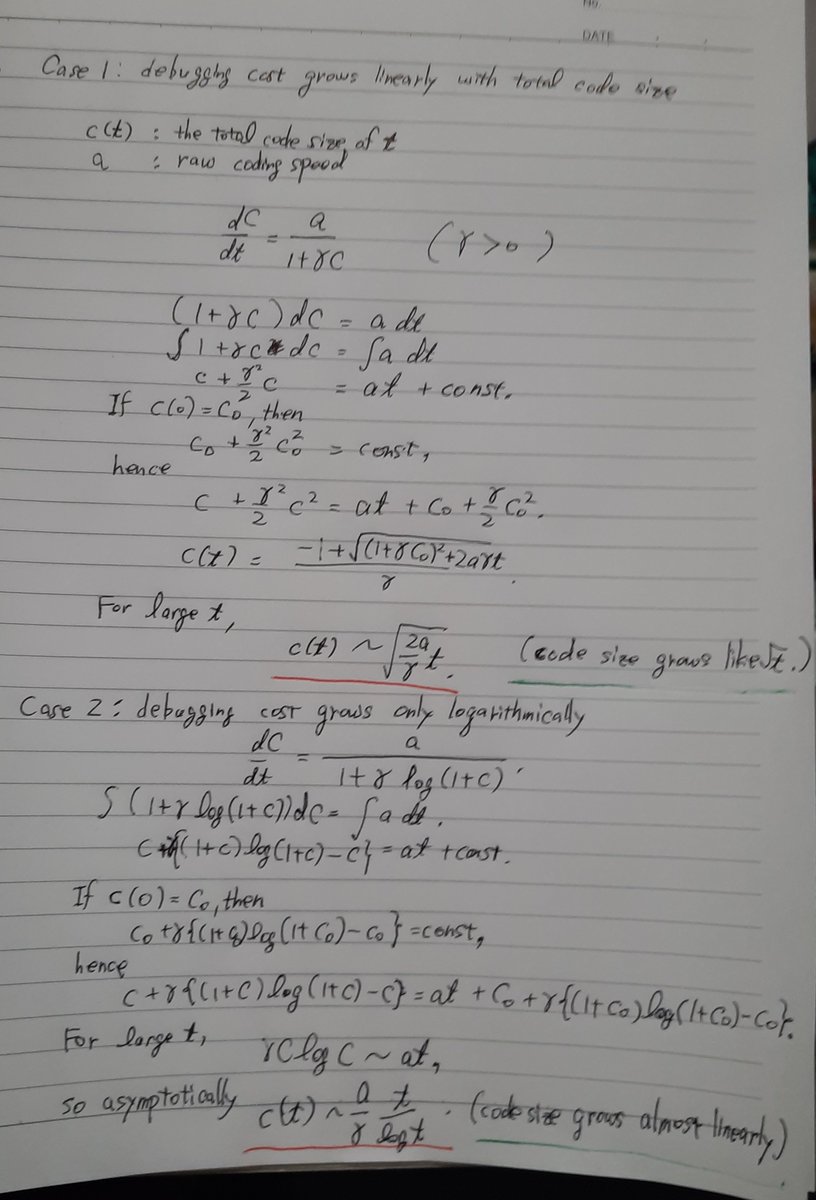 NO.
DATE
Case 1: debugging cost grows linearly with total code size
c(t) : the total code size of t
a : raw coding speed
dC/dt = a/(1+γC) (γ>0)
(1+γC)dC = a dt
∫1+γC dc = ∫a dt
c + γ²/2 C = at + const.
If c(0)=C₀, then
C₀ + γ²/2 C₀² = const,
hence
C + γ²/2 C² = at + C₀ + γ/2 C₀².
C(t) = (-1+√((1+γC₀)²+2aγt))/γ.
For large t,
c(t) ~ √(2a/γ t). (code size grows like √t.)
Case 2: debugging cost grows only logarithmically
dC/dt = a/(1+γ log(1+C)).
∫(1+γ log(1+C))dC = ∫a dt.
C+γ{(1+C)log(1+C)-C} = at + const.
If C(0)=C₀, then
C₀+γ{(1+C₀)log(1+C₀)-C₀}=const,
hence
C+γ{(1+C)log(1+C)-C}=at+C₀+γ{(1+C₀)log(1+C₀)-C₀}.
For large t, γC log C ~ at,
so asymptotically c(t) ~ a/γ t/log t. (code size grows almost linearly)